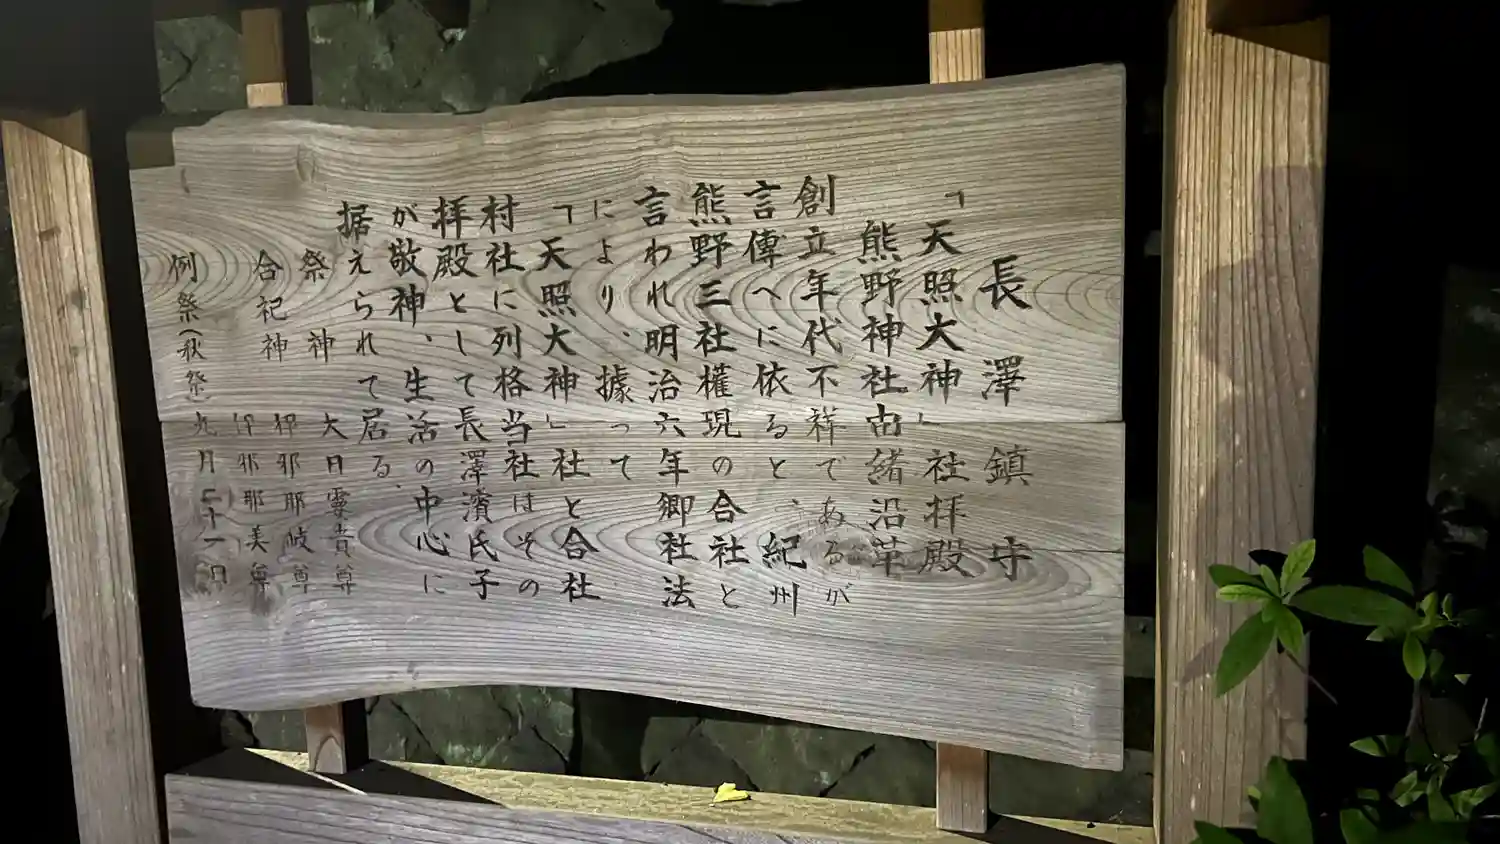 長澤鎮守
「天照大神」社拝殿
熊野神社由緒沿革
創立年代不祥であるが
言傳へに依ると、紀州
熊野三社権現の合社と
言われ明治六年郷社法
により、據って
「天照大神」社と合社
村社に列格当社はその
拝殿として長澤濱氏子
が敬神、生活の中心に
据えられて居る、
祭神 大日孁貴尊
伊邪那岐尊
合祀神 伊邪那美尊
例祭(秋祭) 九月二十一日